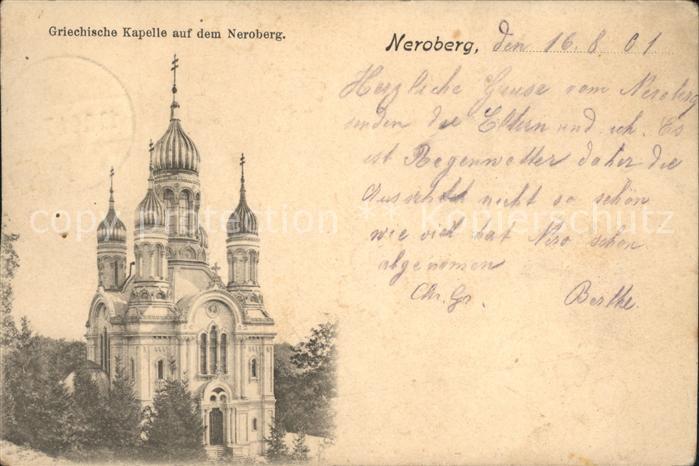 Griechische Kapelle auf dem Neroberg.
Neroberg, den 16. 8. 01
Herzliche Grüse vom Neroberg
senden die Eltern und ich. Es
ist Regenwetter daher die
Aussicht nicht so schön
wie viel hat Nero schon
abgenomen
Chr. Gr. Berthe.
copyright protection ** Kopierschutz